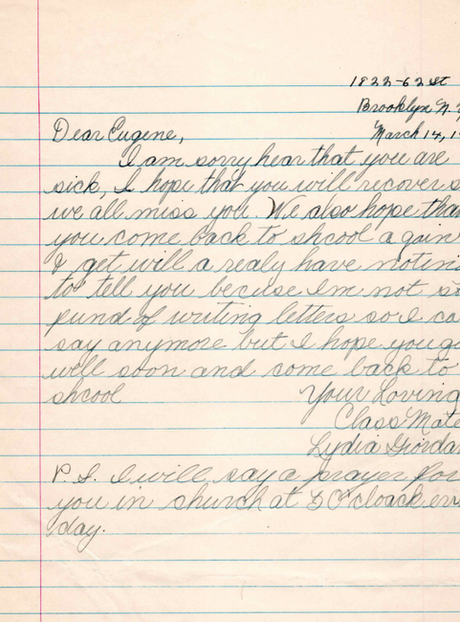 1822-62 St
Brooklyn N.
March 14, 1
Dear Eugene,
I am sorry hear that you are
sick, I hope that you will recover s
we all miss you. We also hope tha
you come back to shcool a gain
I get will a realy have notin
to tell you becuse I'm not s
fund of writing letters so I ca
say anymore but I hope you g
will soon and come back to
shcool Your Loving
Class Mate
Lydia Giorda
P.S. I will say a prayer for
you in shurch at 8 O'cloack
day.